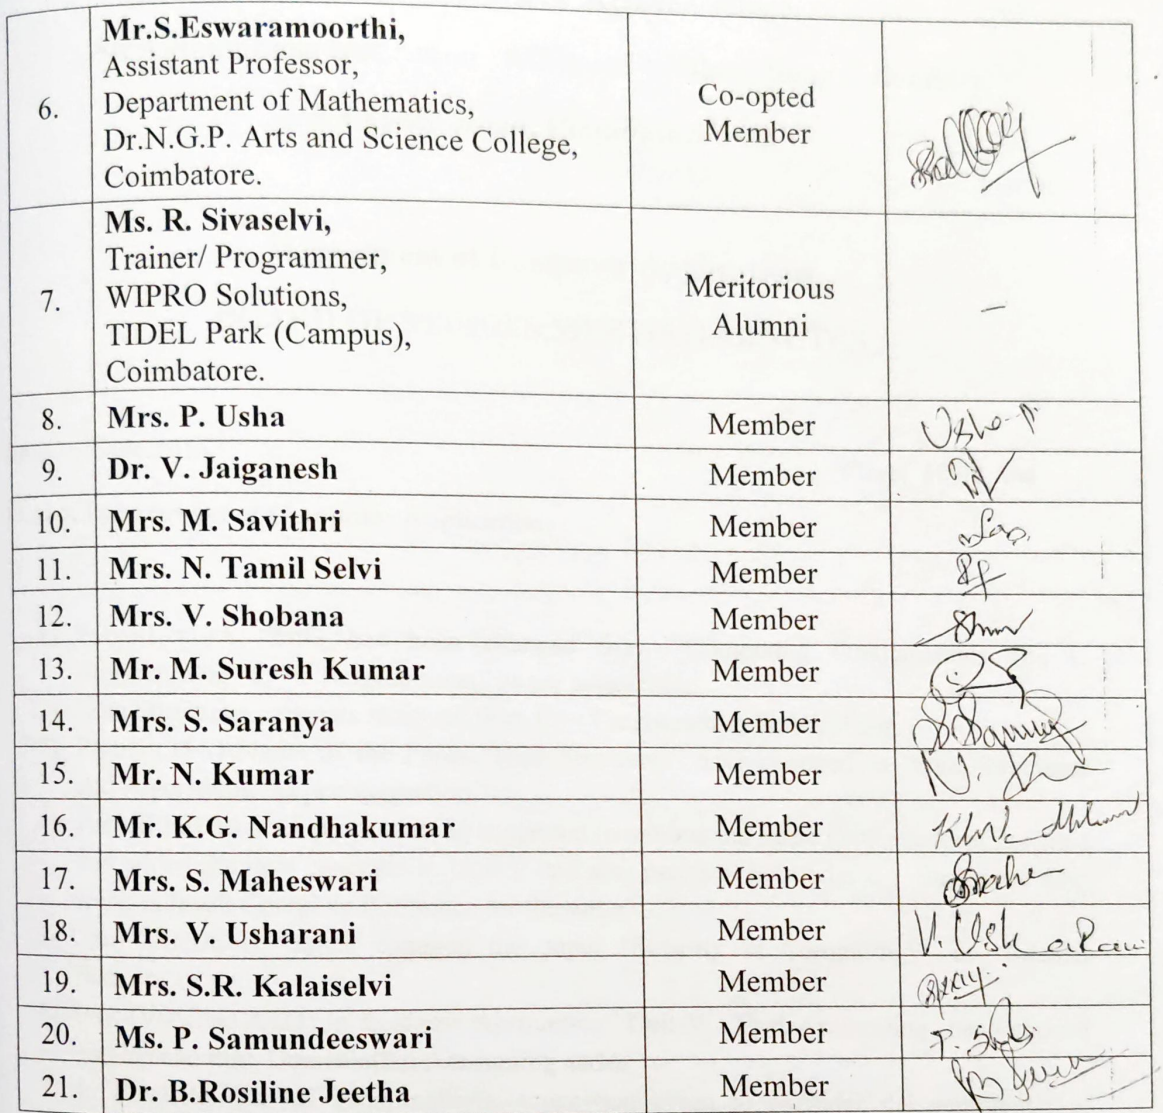 6.
Mr.S.Eswaramoorthi,
Assistant Professor,
Department of Mathematics,
Dr.N.G.P. Arts and Science College,
Coimbatore.
Co-opted
Member
7.
Ms. R. Sivaselvi,
Trainer/ Programmer,
WIPRO Solutions,
TIDEL Park (Campus),
Coimbatore.
Meritorious
Alumni
-
8. Mrs. P. Usha Member Usha.P.
9. Dr. V. Jaiganesh Member
10. Mrs. M. Savithri Member
11. Mrs. N. Tamil Selvi Member
12. Mrs. V. Shobana Member
13. Mr. M. Suresh Kumar Member
14. Mrs. S. Saranya Member
15. Mr. N. Kumar Member
16. Mr. K.G. Nandhakumar Member
17. Mrs. S. Maheswari Member
18. Mrs. V. Usharani Member V. Usharani
19. Mrs. S.R. Kalaiselvi Member
20. Ms. P. Samundeeswari Member
21. Dr. B.Rosiline Jeetha Member